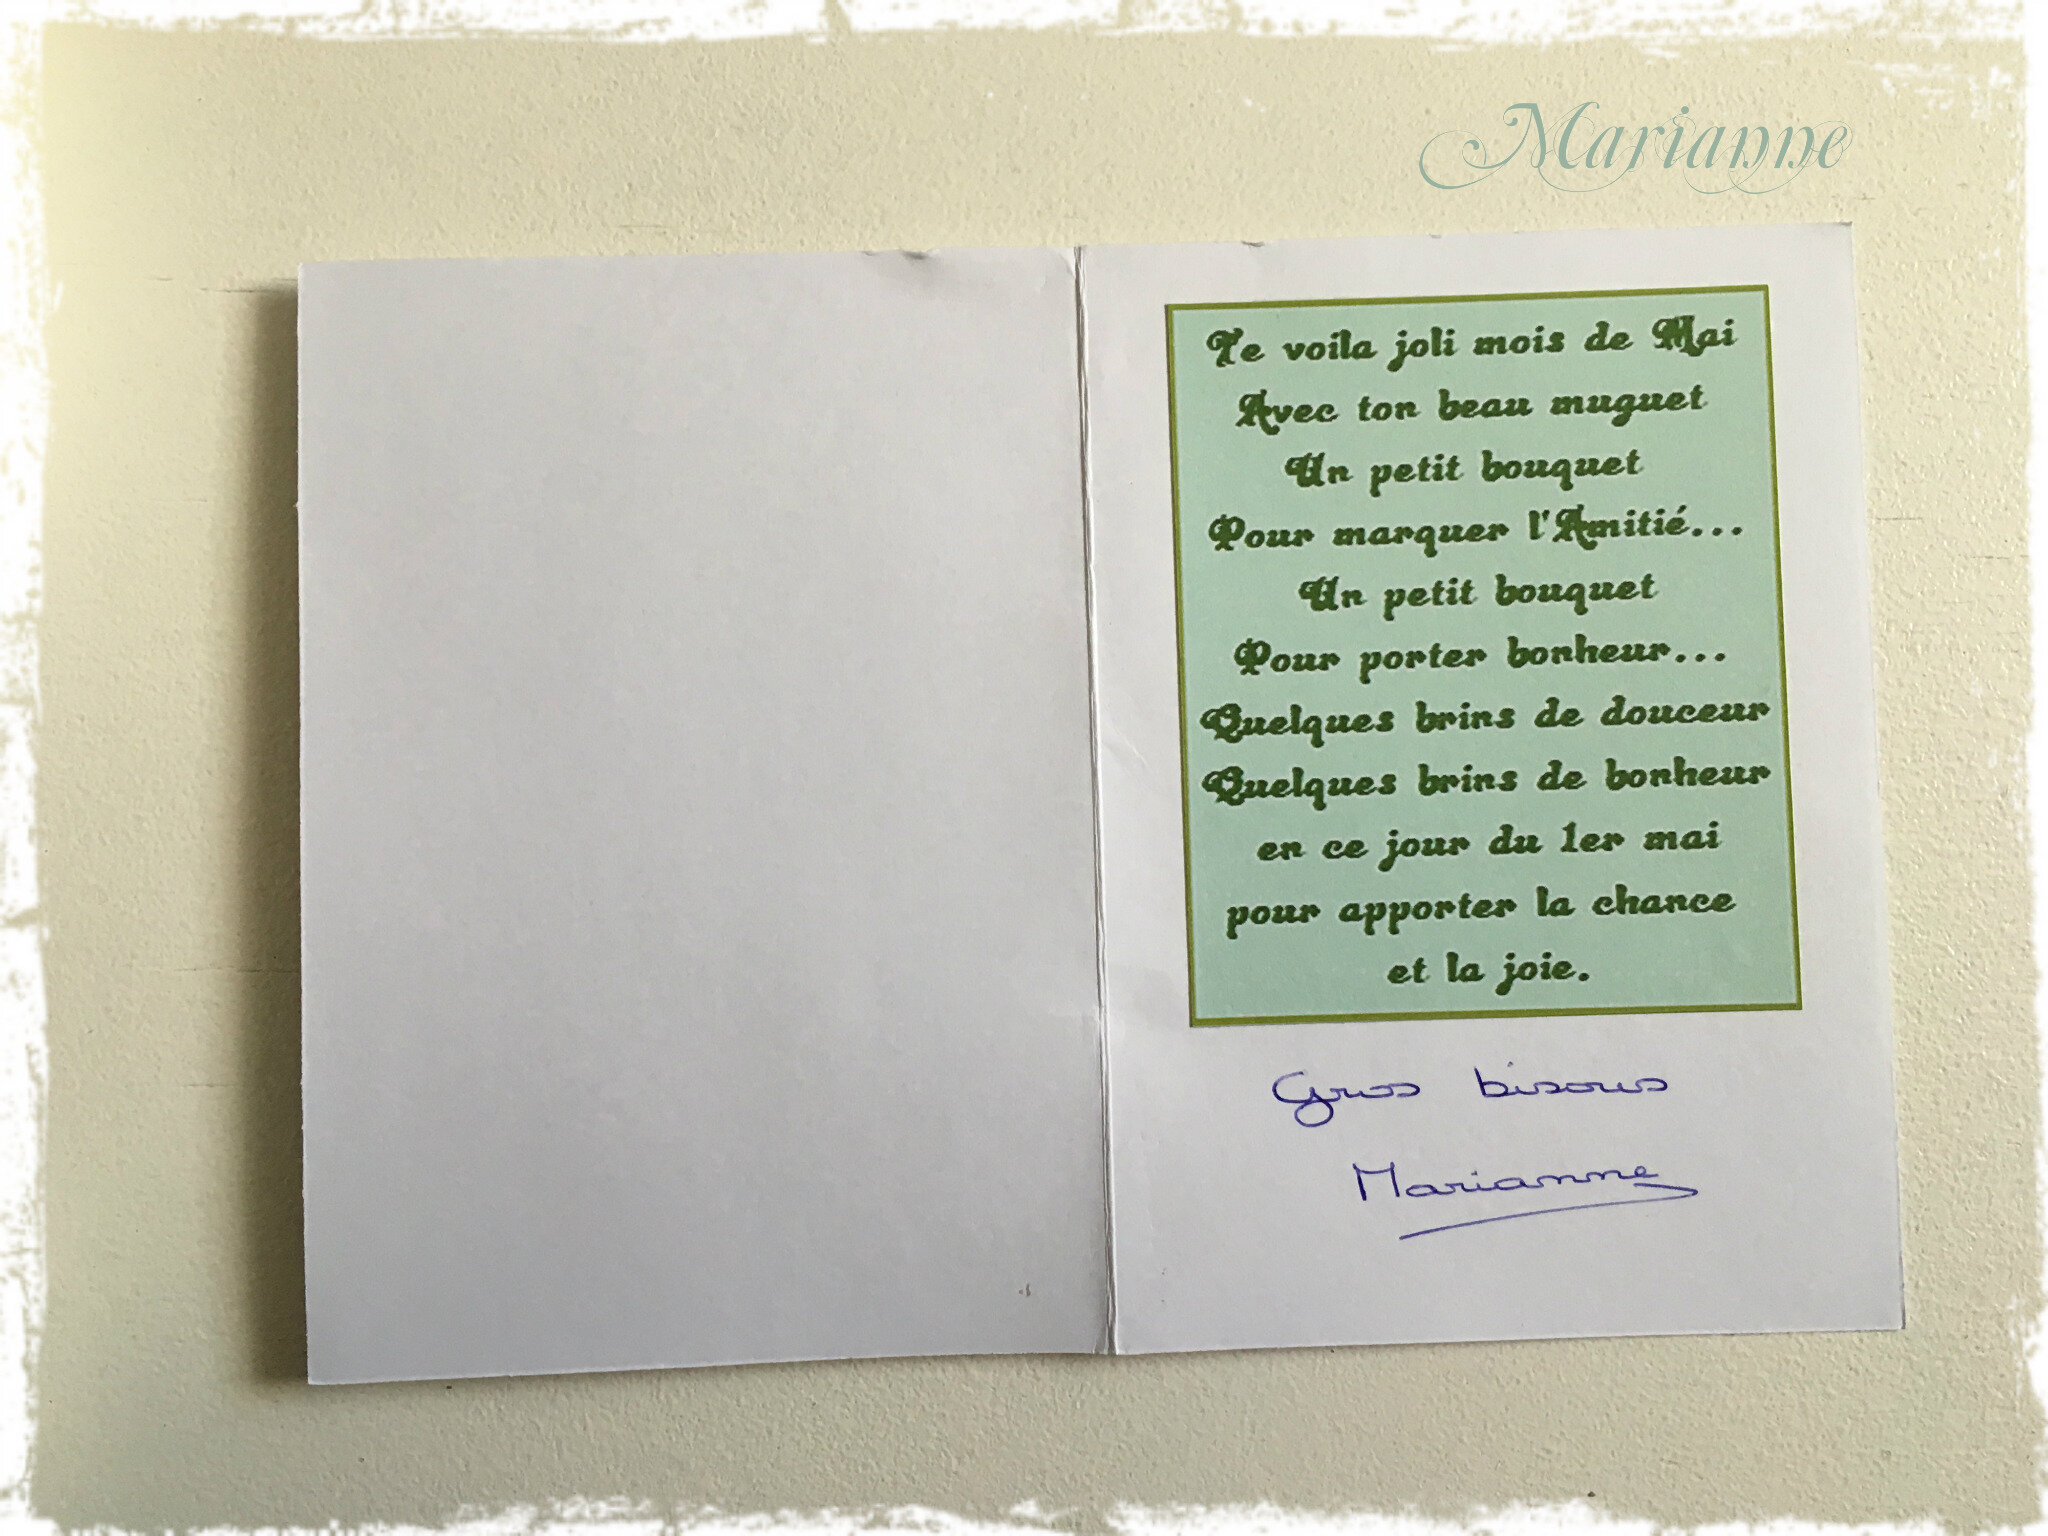 Marianne
Te voila joli mois de Mai
Avec ton beau muguet
Un petit bouquet
Pour marquer l'Amitié...
Un petit bouquet
Pour porter bonheur...
Quelques brins de douceur
Quelques brins de bonheur
en ce jour du 1er mai
pour apporter la chance
et la joie.
Gros bisous
Marianne